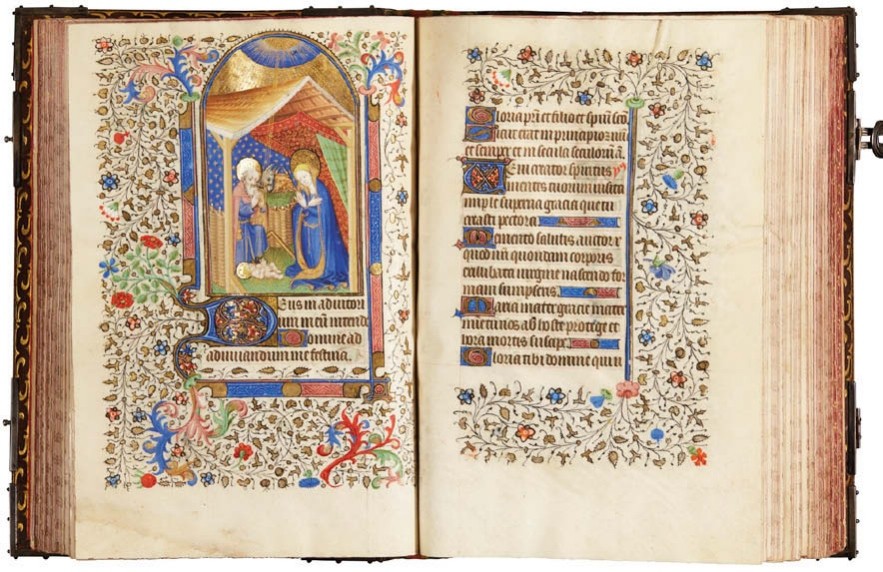 Deus in adiutori
um meū intende
Domine ad
adiuuandum me festina.
Gloria pr̄i et filio et spiritui sc̄o
Sicut erat in principio et nūc
et semper et in secula seculorum. a
Veni creator spiritus
mentes tuorum uisita
imple superna gracia que tu
creasti pectora
Memento salutis auctor
quod nr̄i quondam corporis
ex illibata uirgine nascendo for
mam sumpseris
Maria mater gracie mater
tu nos ab hoste protege et
hora mortis suscipe
Gloria tibi domine qui